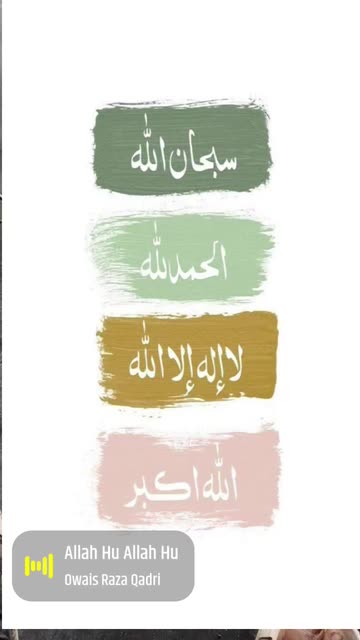 سبحان الله
الحمد لله
لا إله إلا الله
الله اكبر
Allah Hu Allah Hu
Owais Raza Qadri